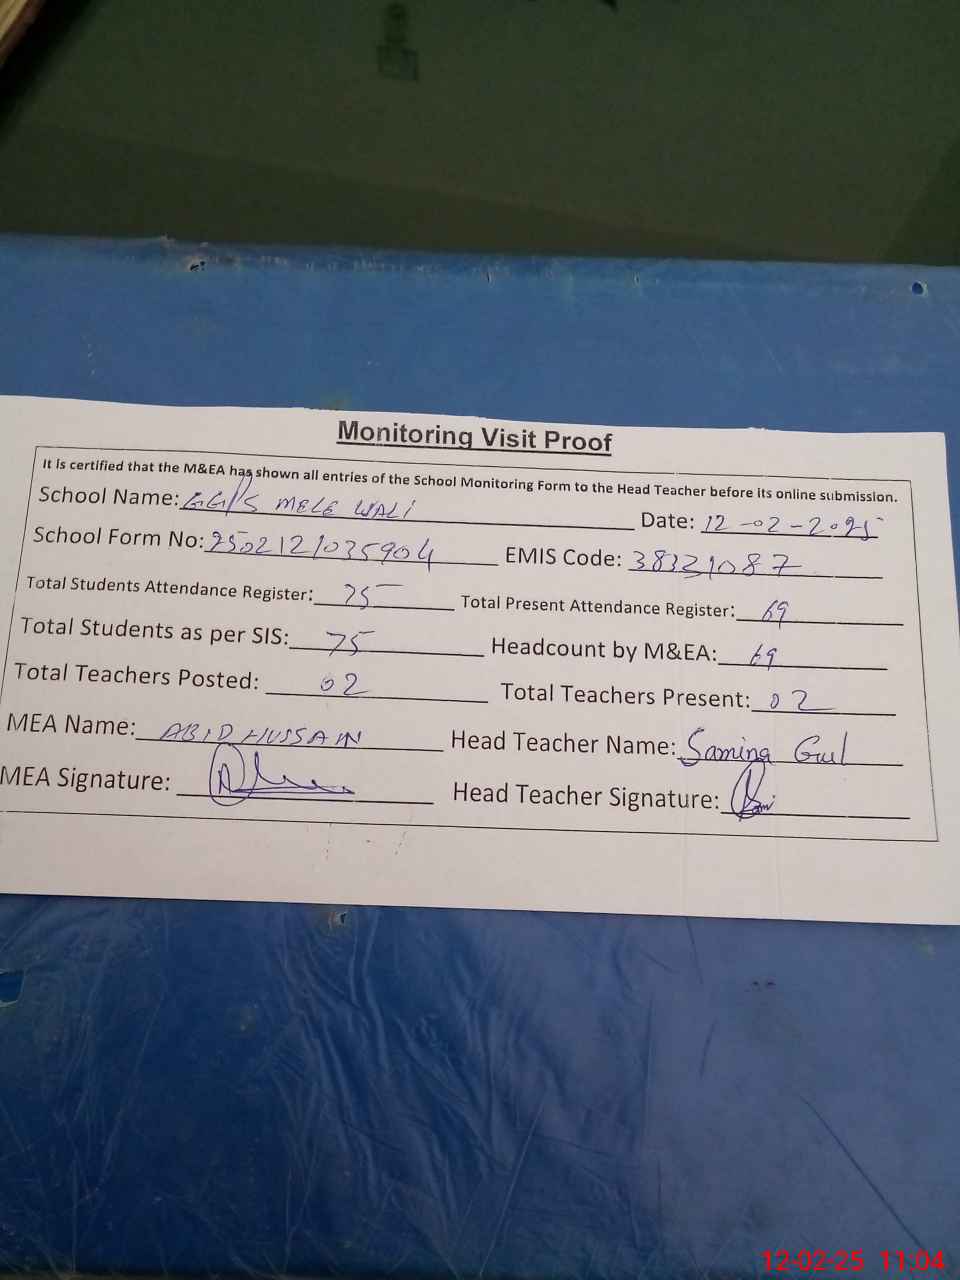 Monitoring Visit Proof
It is certified that the M&EA has shown all entries of the School Monitoring Form to the Head Teacher before its online submission.
School Name: GGP/S MELE WALI Date: 12-02-2025
School Form No: 2502121035904 EMIS Code: 38321087
Total Students Attendance Register: 75 Total Present Attendance Register: 69
Total Students as per SIS: 75 Headcount by M&EA: 69
Total Teachers Posted: 02 Total Teachers Present: 02
MEA Name: ABID HUSSAIN Head Teacher Name: Samina Gul
MEA Signature: Head Teacher Signature:
12-02-25 11:04